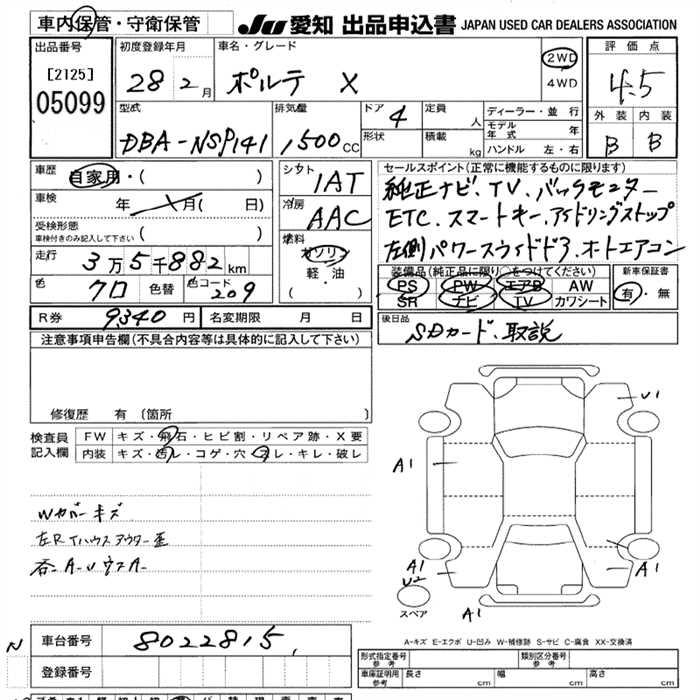 車内保管・守衛保管
JU 愛知 出品申込書 JAPAN USED CAR DEALERS ASSOCIATION
出品番号
[2125]
05099
初度登録年月
28 2月
車名・グレード
ポルテ X
2WD
4WD
評価点
4.5
外装 内装
B B
型式
DBA-NSP141
排気量
1500CC
ドア 4
形状
定員 人
積載 kg
ディーラー・並行
モデル年式 年
ハンドル 左・右
車歴 自家用・( )
車検 年 月( 日)
受検形態
車検付きのみ記入して下さい ( )
走行 3万5千882km
色 クロ 色替 色コード 209
シフト
1AT
冷房
AAC
燃料
ガソリン
軽・油
( )
セールスポイント(正常に機能するものに限ります)
純正ナビ、TV、バックモニター
ETC、スマートキー、アイドリングストップ
左側パワースライドドア、オートエアコン
装備品(純正品に限り○をつけてください)
PS PW エアB AW
SR ナビ TV カワシート
新車保証書
有・無
R券 9,340円 名変期限 月 日
後日品
SDカード、取説
注意事項申告欄(不具合内容等は具体的に記入して下さい)
修復歴 有(箇所 )
検査員記入欄
FW キズ・飛石・ヒビ割・リペア跡・X要
内装 キズ・汚レ・コゲ・穴・スレ・キレ・破レ
Wカバーキズ
左Rタイヤハウスアウター歪
U1
A1
A1
U2
A1
A1
スペア
A-キズ E-エクボ U-凹み W-補修跡 S-サビ C-腐食 XX-交換済
N
車台番号 8022815
登録番号
形式指定番号 参考
類別区分番号 参考
車庫証明用 参考 長さ cm 幅 cm 高さ cm